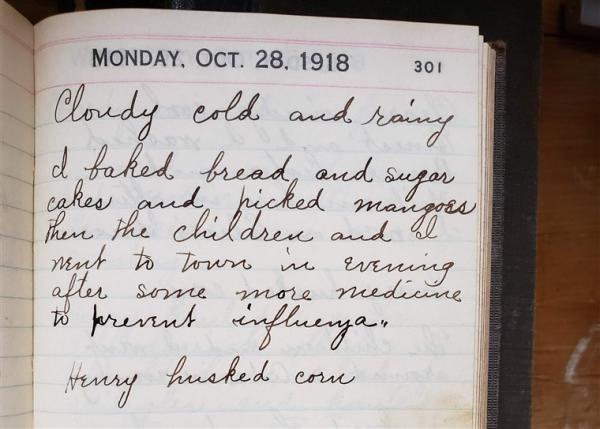 MONDAY, OCT. 28, 1918 301
Cloudy cold and rainy
I baked bread and sugar
cakes and picked mangoes
then the children and I
went to town in evening
after some more medicine
to prevent influenza"
Henry husked corn